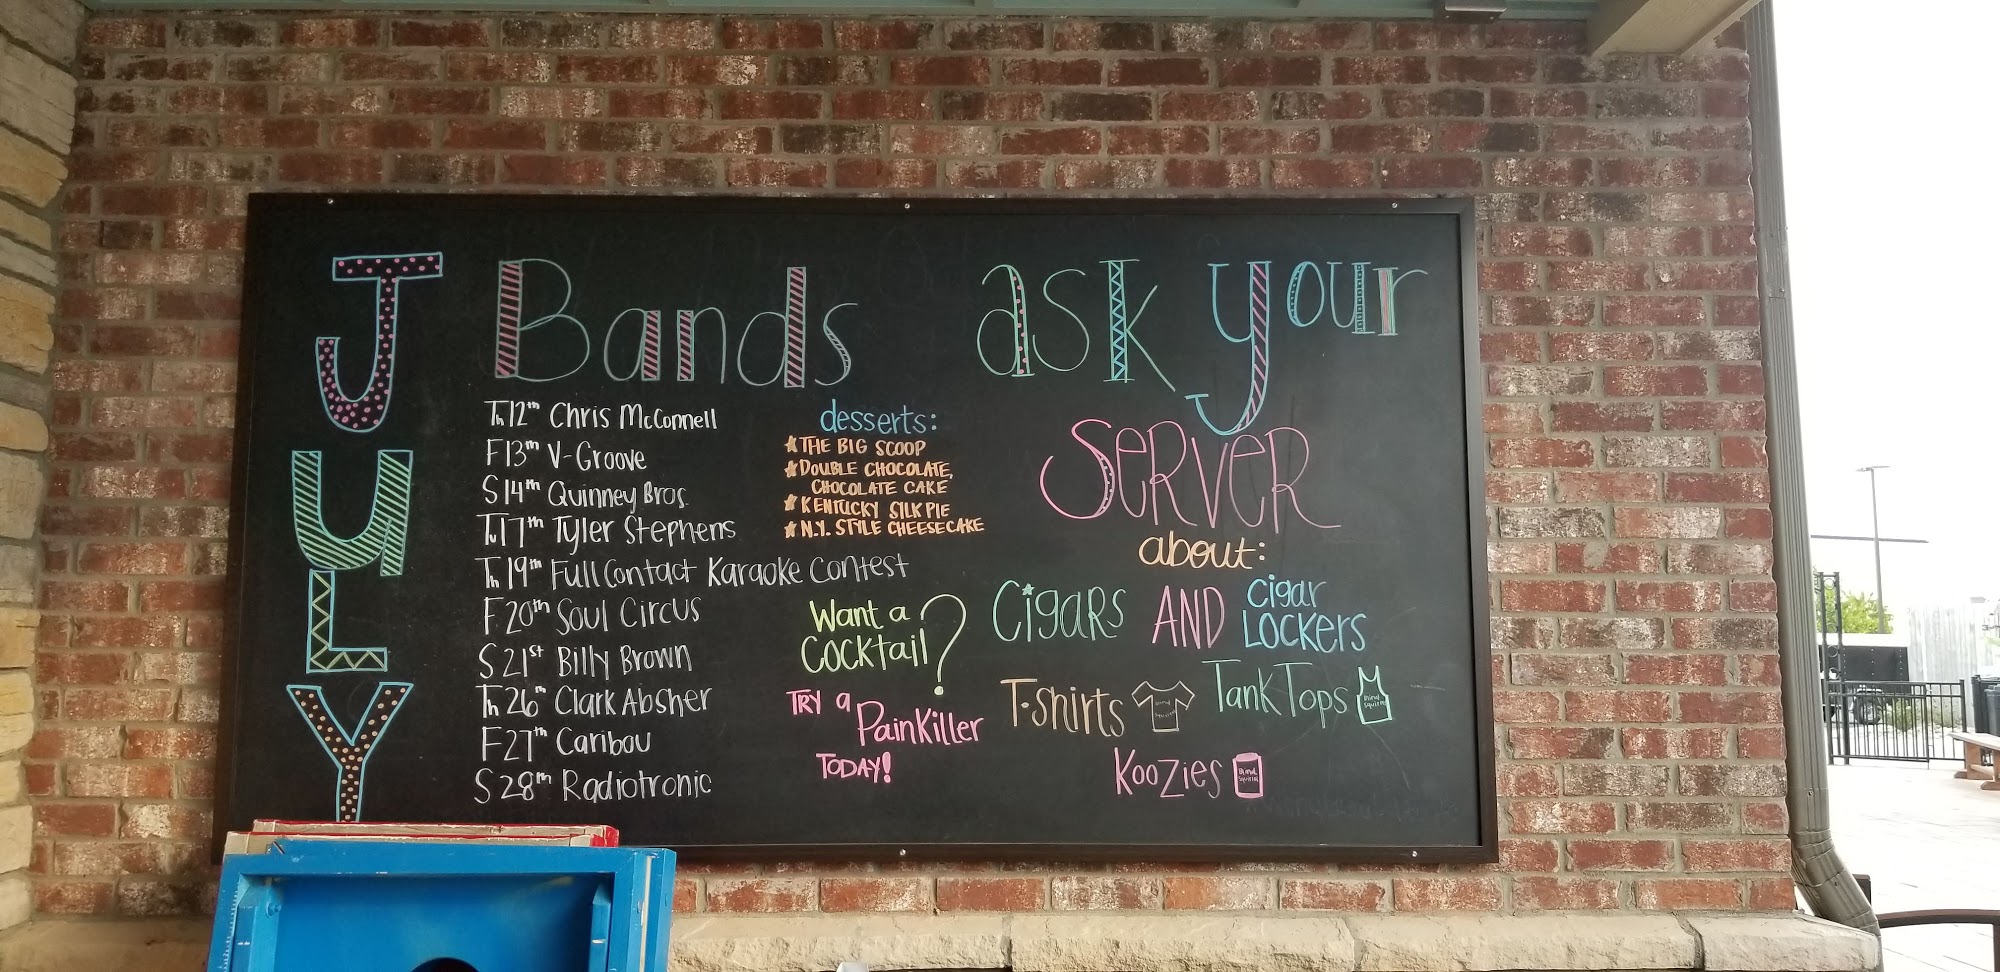 JULY
Bands
Th 12th Chris McConnell
F 13th V-Groove
S 14th Quinney Bros.
Tu 17th Tyler Stephens
Th 19th Full Contact Karaoke Contest
F 20th Soul Circus
S 21st Billy Brown
Th 26th Clark Absher
F 27th Caribou
S 28th Radiotronic
desserts:
THE BIG SCOOP
DOUBLE CHOCOLATE,
CHOCOLATE CAKE
KENTUCKY SILK PIE
N.Y. STYLE CHEESECAKE
Want a
Cocktail?
TRY a
PainKiller
TODAY!
ask your
SERVER
about:
Cigars AND Cigar
LOCKERS
T-Shirts
Tank Tops
KooZies